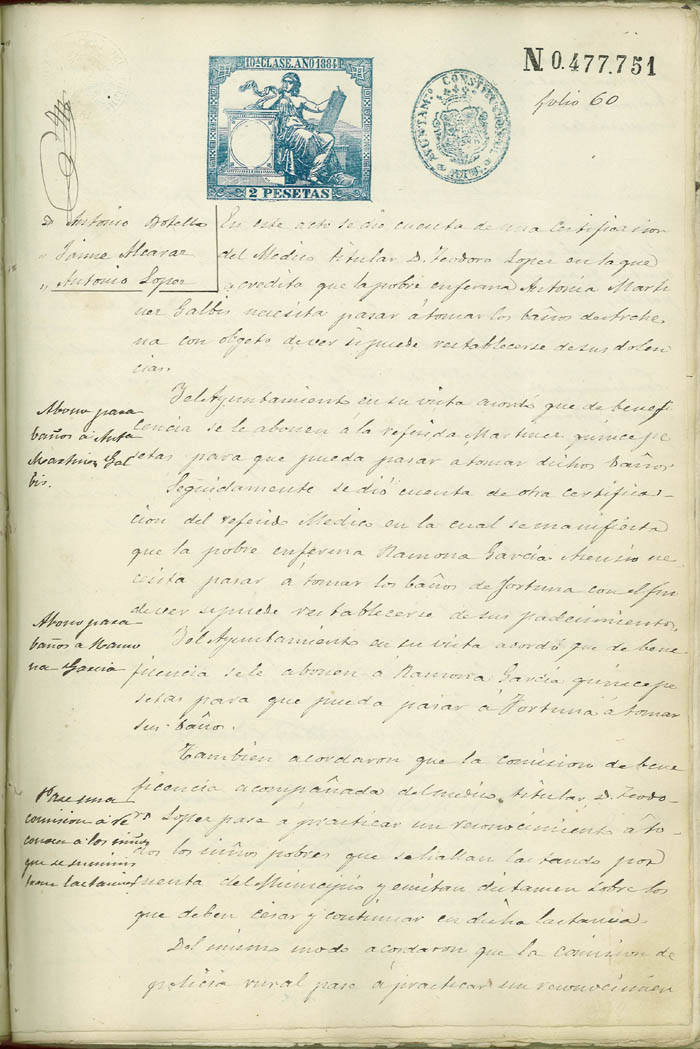 10ª CLASE. AÑO 1884
2 PESETAS
N 0.477.751
AYUNTAM.º CONSTITUCIONAL
folio 60
D. Antonio Botella
" Jaime Alcaraz
" Antonio Lopez
En este acto se dio cuenta de una certificacion
del Medico titular D. Teodoro Lopez en la que
acredita que la pobre enferma Antonia Marti
nez Galbis necesita pasar á tomar los baños de Arche
na con objeto de ver si puede restablecerse de sus dolen
cias.
Abono para
baños á Anta
Martinez Gal
bis.
Y el Ayuntamiento en su vista acordó que de benefi
cencia se le abonen á la referida Martinez quince pe
setas para que pueda pasar a tomar dichos baños
Seguidamente se dió cuenta de otra certifica-
cion del referido Medico en la cual se manifiesta
que la pobre enferma Ramona García Asensio ne
cesita pasar á tomar los baños de Fortuna con el fin
de ver si puede restablecerse de sus padecimientos.
Abono para
baños a Ramo
na Garcia
Y el Ayuntamiento en su vista acordó que de bene
ficencia se le abonen á Ramona García quince pe
setas para que pueda pasar á Fortuna á tomar
sus baños.
Tambien acordaron que la comision de bene
ficencia acompañada del medico titular D. Teodo-
ro Lopez pase á practicar un reconocimiento á to-
dos los niños pobres que se hallan lactando por
cuenta del Municipio y emitan dictamen sobre los
que deben cesar y continuar en dicha lactancia.
Pase una
comision á re
conocer á los niños
que se suminis
tran lactancia
Del mismo modo acordaron que la comision de
policia rural pase á practicar un reconocimien